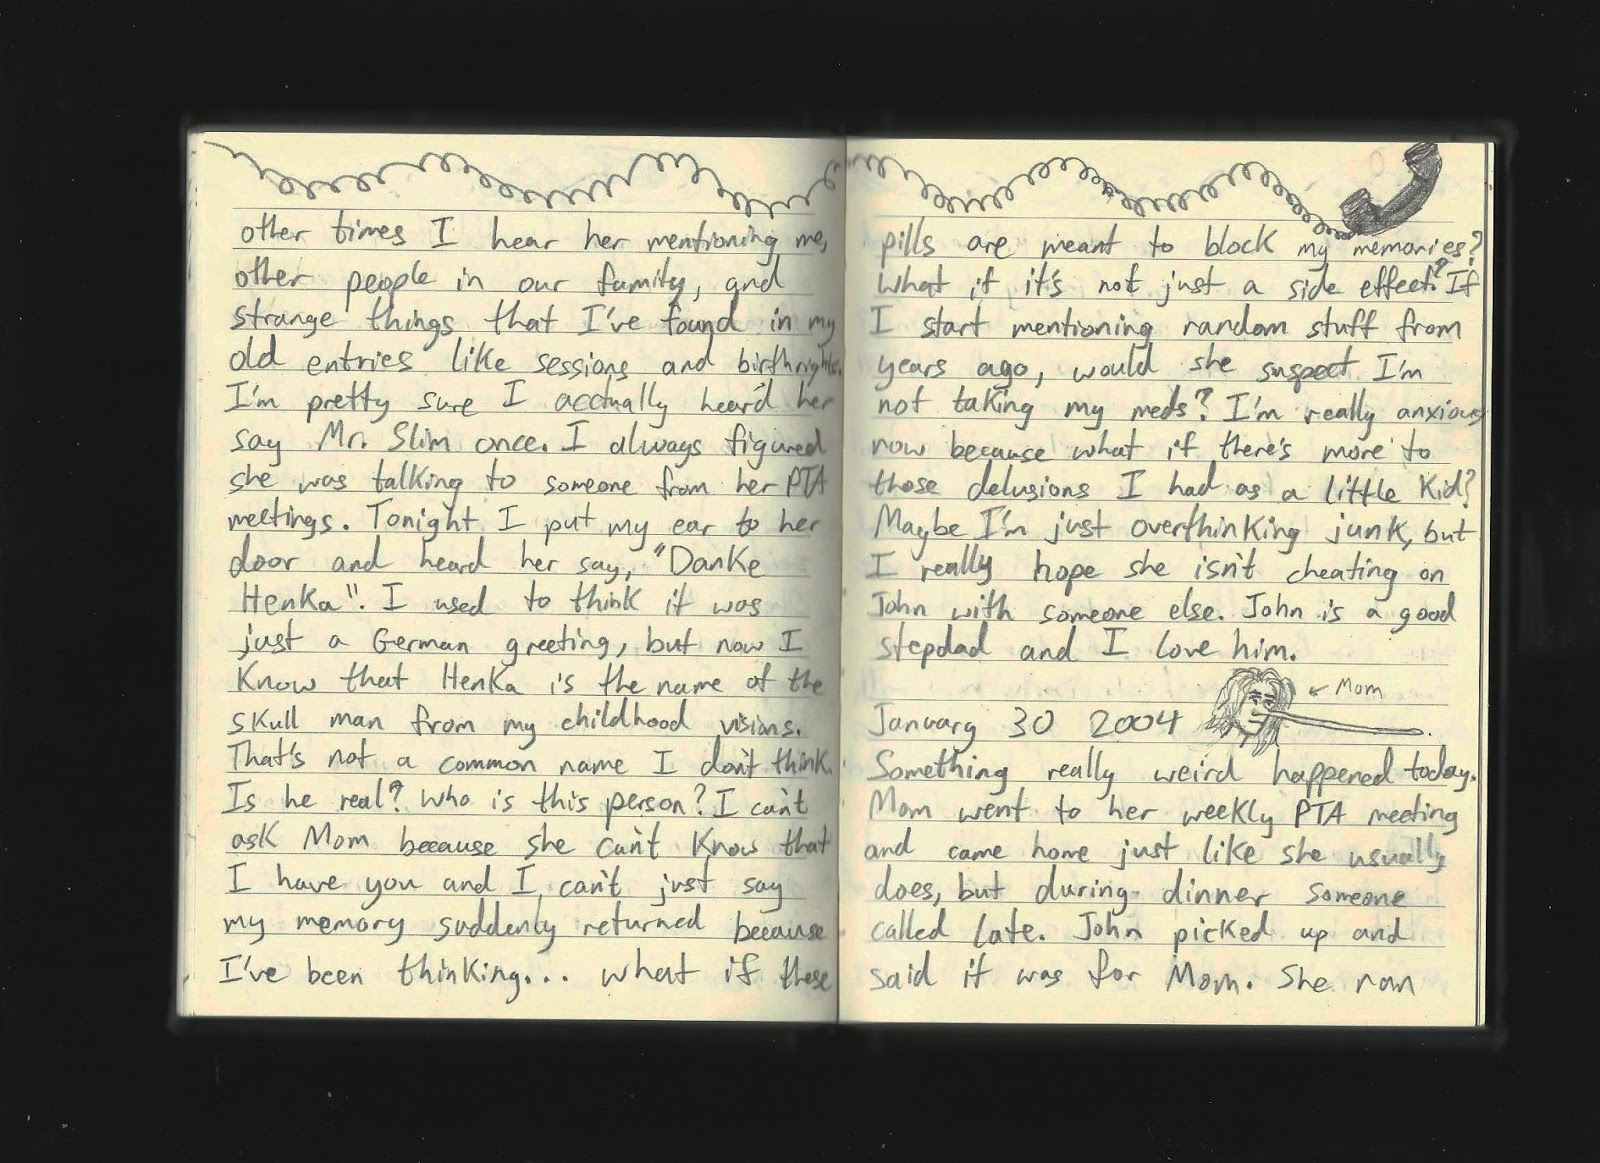 other times I hear her mentioning me,
other people in our family, and
strange things that I've found in my
old entries like sessions and birthrights.
I'm pretty sure I acctually heard her
say Mr. Slim once. I always figured
she was talking to someone from her PTA
meetings. Tonight I put my ear to her
door and heard her say, "Danke
Henka". I used to think it was
just a German greeting, but now I
Know that Henka is the name of the
skull man from my childhood visions.
That's not a common name I don't think.
Is he real? Who is this person? I can't
ask Mom because she can't Know that
I have you and I can't just say
my memory suddenly returned because
I've been thinking... what if these
pills are meant to block my memories?
What if it's not just a side effect? If
I start mentioning random stuff from
years ago, would she suspect I'm
not taking my meds? I'm really anxious
now because what if there's more to
those delusions I had as a little Kid?
Maybe I'm just overthinking junk, but
I really hope she isn't cheating on
John with someone else. John is a good
stepdad and I love him.
← Mom
January 30 2004
Something really weird happened today.
Mom went to her weekly PTA meeting
and came home just like she usually
does, but during dinner someone
called late. John picked up and
said it was for Mom. She ran